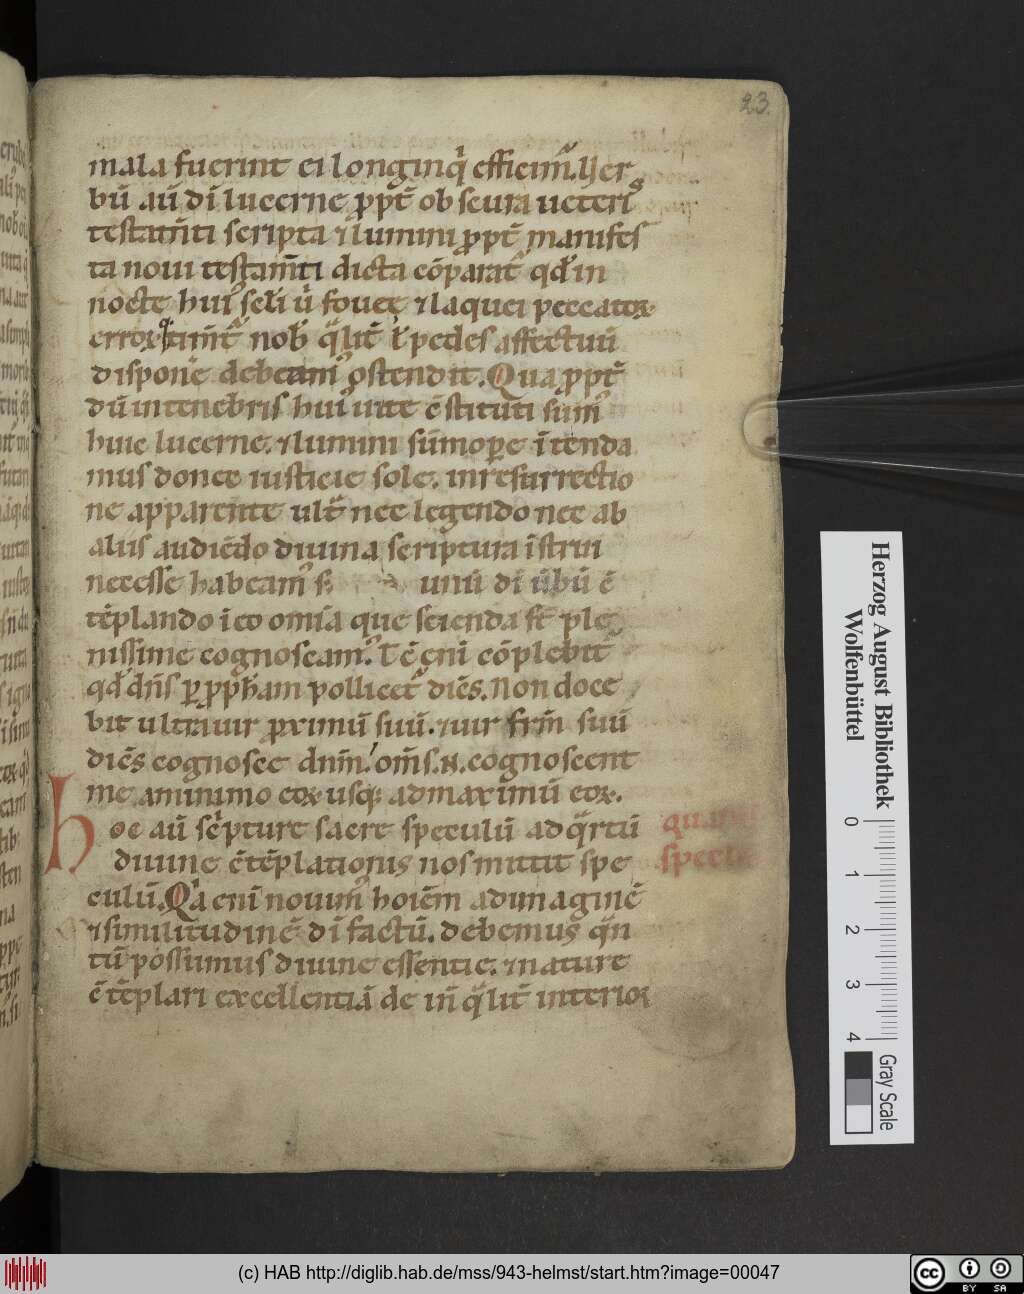 23
mala fuerint ei longinq' efficim̃. Uer
bũ .aũ di lucerne p̱pt̃ obscura ueteris
testam̃ti scripta ⁊ lumini p̱pt̃ manifes
ta noui testam̃ti dicta cõparat̃ qđ in
nocte hui' sc̃li ũ foueę ⁊ laquei peccatoꝝ
dispone debeam' ostendit. Qua p̱pt̃
dũ in tenebris hui' uite c̃stituti sum'
huic lucerne. ⁊ lumini sũmop̱e ĩtenda
mus donec iusticie sole. in resurrectio
ne apparente ult̃ nec legendo nec ab
aliis audiẽdo diuina scriptura ĩstrui
necesse habeam' unũ di ũbũ c̃
tẽplando ĩ eo omĩa que scienda st̃ ple
nissime cognoscam'. Tẽ enĩ cõplebit̃
qđ dñs p̱ p̱pħam pollicet̃ diẽs. Non doce
bit ultra uir p̱ximũ suũ. ⁊ uir frm̃ suũ
diẽs cognosce dnm̃. om̃s .N. cognoscent
me a minimo eoꝝ usq; ad maximũ eoꝝ.
hoc aũ sc̃pture sacre speculũ ad q̃rtũ
diuine c̃tẽplationis nos mittit spe
culũ. Qͥa enĩ nouim' hoiẽm ad imaginẽ
⁊ similitudinẽ di factũ. debemus q̃n
tũ possumus diuine essentie. ⁊ nature
c̃tẽplari excellentiã de iñ q̃lit̃ interior
Herzog August Bibliothek
Wolfenbüttel
0 1 2 3 4
Gray Scale
(c) HAB http://diglib.hab.de/mss/943-helmst/start.htm?image=00047
cc BY SA